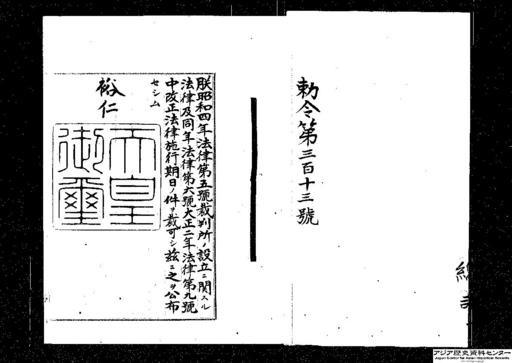 勅令第三百十三號
朕昭和四年法律第五號裁判所ノ設立ニ關スル
法律及同年法律第六號大正二年法律第九號
中改正法律施行期日ノ件ヲ裁可シ茲ニ之ヲ公布
セシム
裕仁
天皇
御璽
アジア歴史資料センター
Japan Center for Asian Historical Records